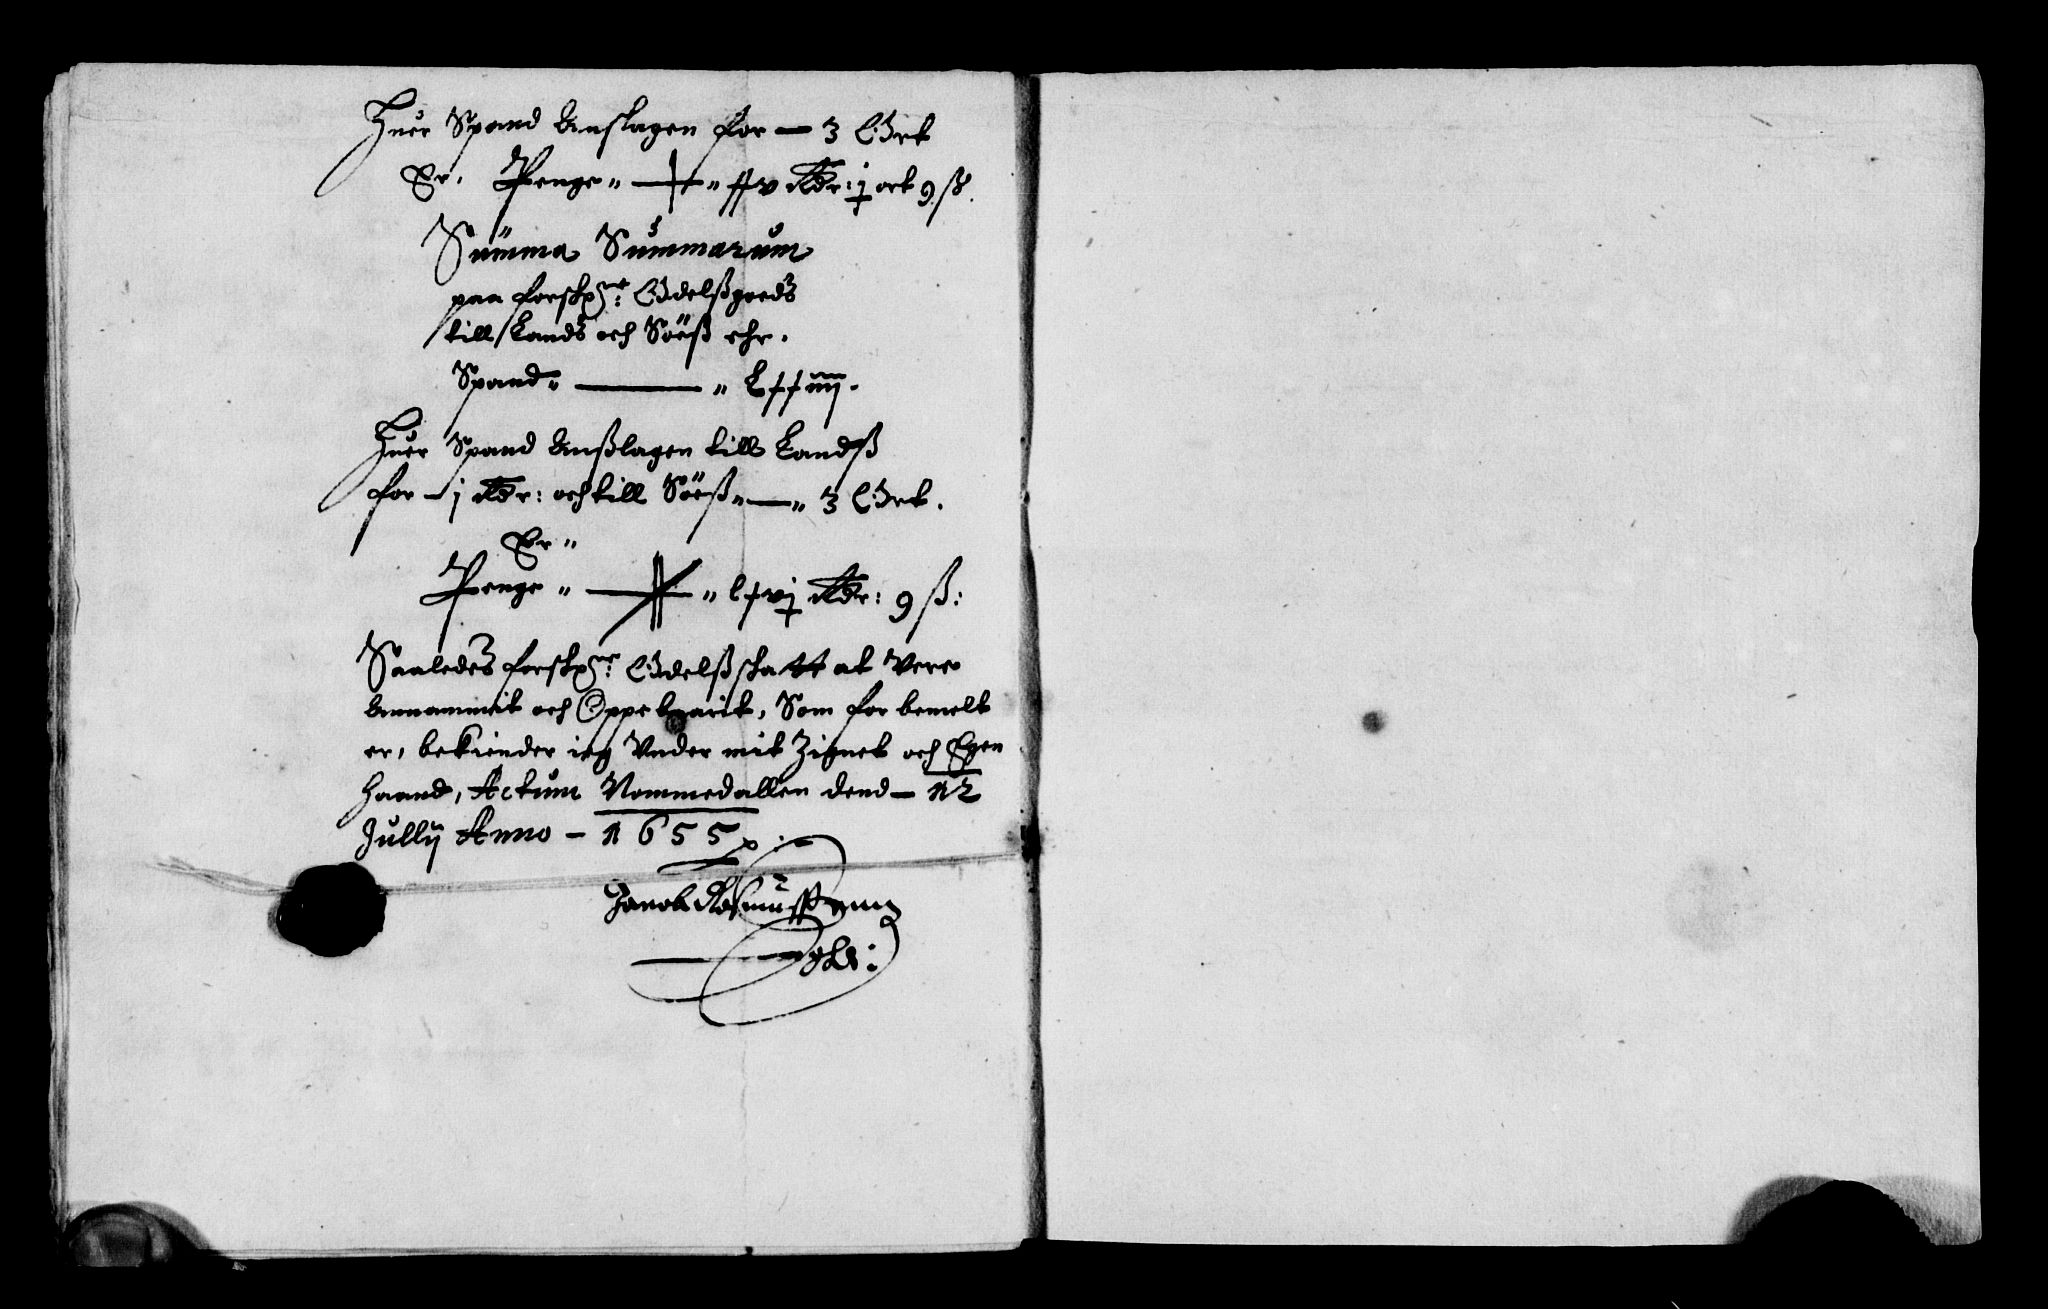 Huer Spand Anslagen for — 3 Ort
Er. Penge „ — „ xxv Rdr: j ort 9 ß.
Summa Summarum
paa forskr:ne Odelßgoeds
till Lands och Söeß ehr.
Spand „ — „ Lxxiiij.
Huer Spand Anßlagen till Landß
for – j Rdr: och till Söeß „ — „ 3 Ort.
Er „
Penge „ — „ lxvj Rdr: 9 ß:
Saaledes forskr:ne Odelßskatt at Vere
Annammit och Oppeboarit, Som for bemelt
er, bekiender ieg Vnder mit Zignet och Egen
haand, Actum Nommedallen dend – 12
Jullij Anno – 1655
Jacob Rasmussenn